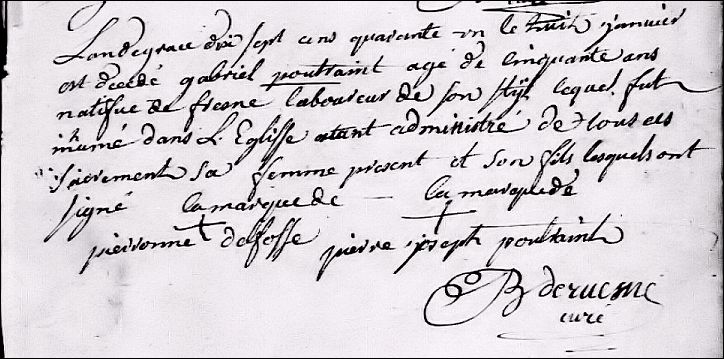 Landegrace dix sept cens quarante un le huit janvier
est decedé gabriel poutraint agé de cinquante ans
natifue de fresne laboureur de son stil lequel fut
inhumé dans L'Eglisse etant administré de tous ces
sacrement sa femme present et son fils lesquels ont
signé la marque de la marque de
pieronne defosse pierre joseph poutraint
curé